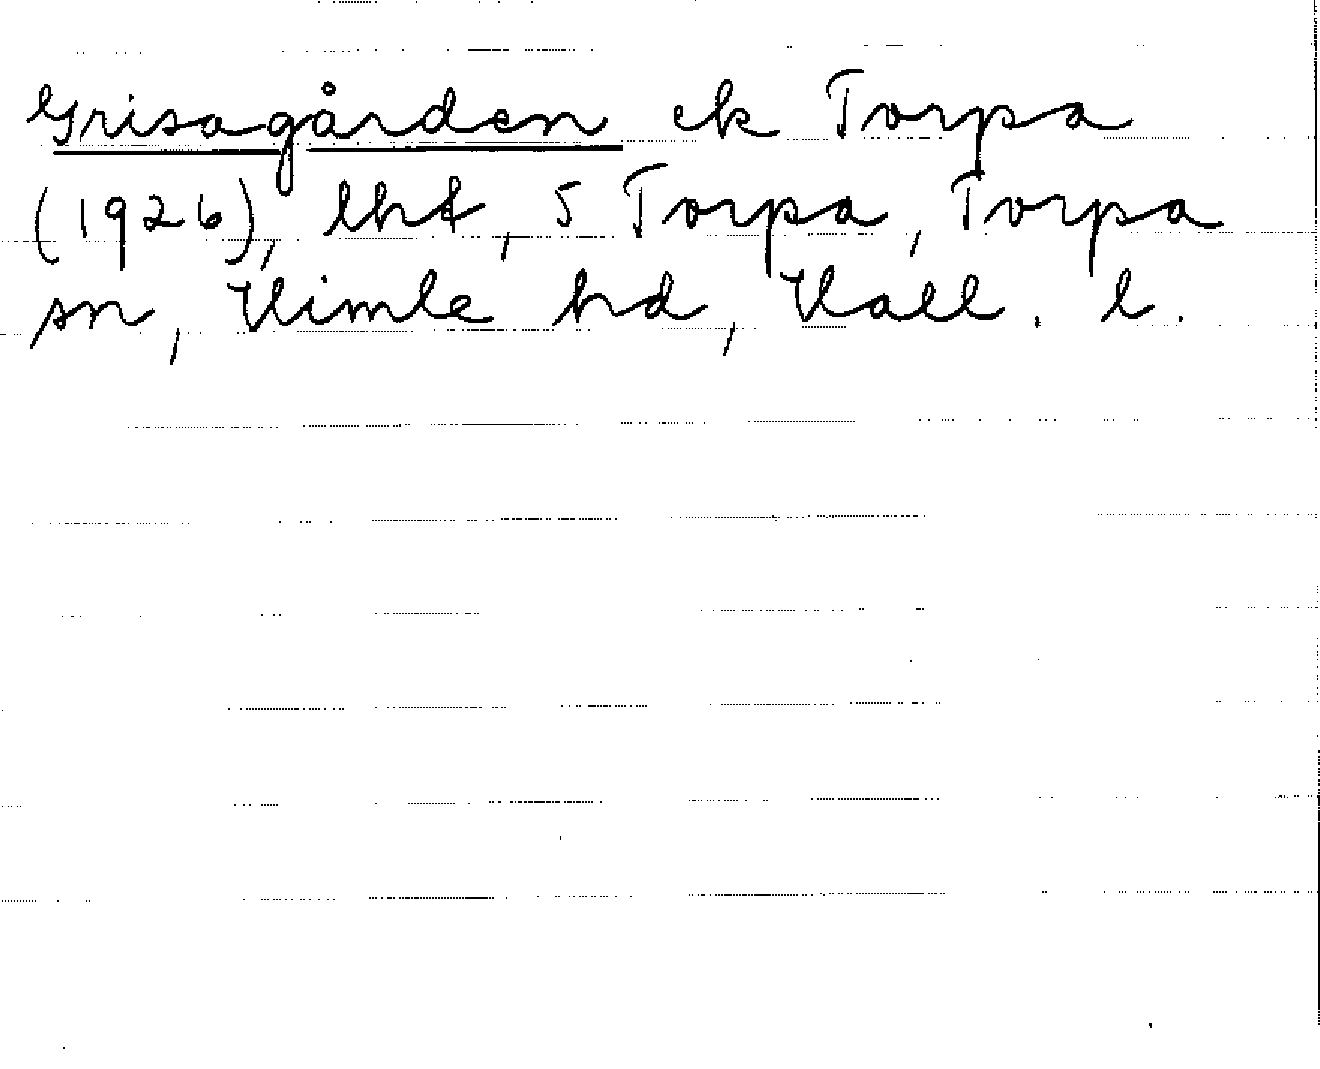 Grisagården ek Torpa
(1926), lht, 5 Torpa, Torpa
sn, Himle hd, Hall. l.